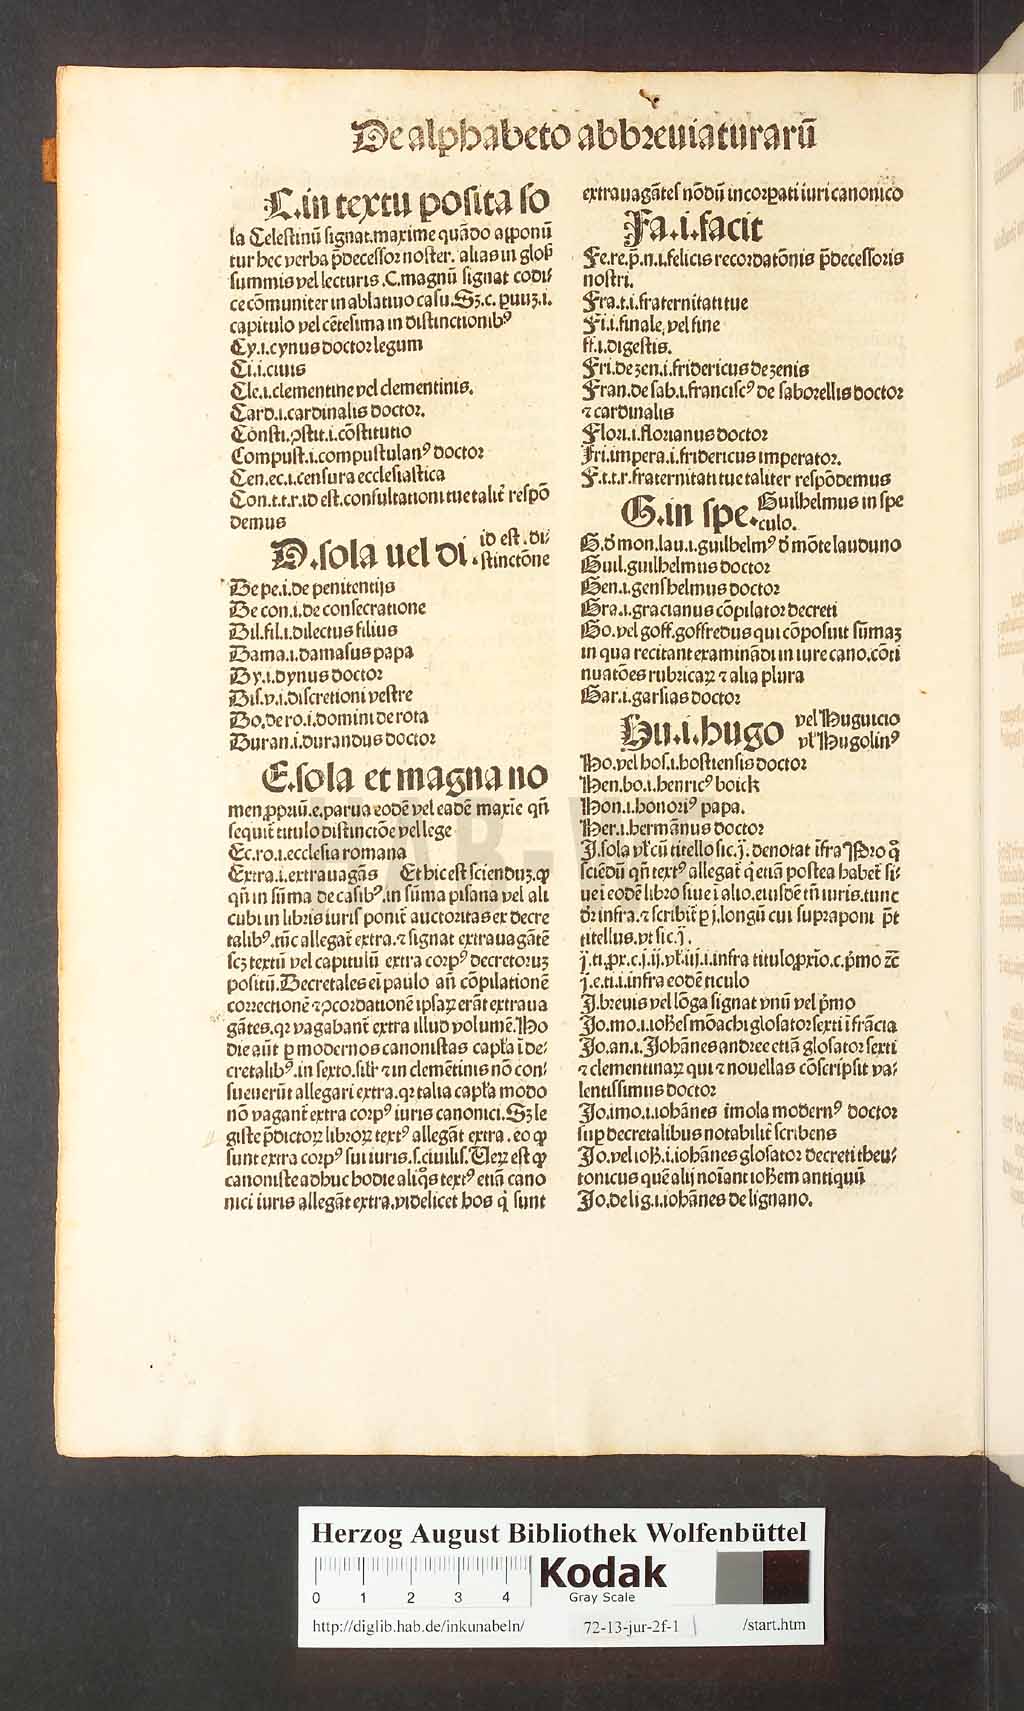 De alphabeto abbreuiaturarū
C.in textu posita so
la Celestinū signat.maxime quādo apponū
tur hec verba p̄decessor noster. alias in glosẜ
summis vel lecturis .C.magnū signat codi⸗
ce cōmuniter in ablatiuo casu.Sꝫ.c. ꝑuuꝫ.i.
capitulo vel cētesima in distinctionibꝰ
Cy.i.cynus doctor legum
Ci.i.ciuis
Cle.i.clementine vel clementinis.
Card.i.cardinalis doctor.
Consti.ꝯstit.i.cōstitutio
Compust.i.compustulanꝰ doctor
Cen.ec.i.censura ecclesiastica
Con.t.t.r.id est.consultationi tue talit̄ respō
demus
D.sola uel di. id est .di⸗
stinctōne
De pe.i.de penitentijs
De con.i.de consecratione
Dil.fil.i.dilectus filius
Dama.i.damasus papa
Dy.i.dynus doctor
Dis.v.i.discretioni vestre
Do.de ro.i.domini de rota
Duran.i.durandus doctor
E.sola et magna no
men ꝓpriū.e.parua eodē vel eadē maxīe qn̄
sequit̄ titulo distinctōe vel lege
Ec.ro.i.ecclesia romana
Extra.i.extrauagās Et hic est sciendūꝫ.ꝙ
qn̄ in sūma de casibꝰ.in sūma pisana vel ali
cubi in libris iuris ponit̄ auctoritas ex decre
talibꝰ.tūc allegat̄ extra.⁊ signat extrauagātē
scꝫ textū vel capitulū extra corpꝰ decretoruꝫ
positū.Decretales eī paulo an̄ cōpilationē
correctionē ⁊ ꝯcordationē ipsaꝝ erāt extraua
gātes.qꝛ vagabant̄ extra illud volumē.Ho
die aūt ꝑ modernos canonistas capl̄a ī de⸗
cretalibꝰ.in sexto.sil̄r ⁊ in clemētinis nō con⸗
sueuerūt allegari extra.qꝛ talia capl̄a modo
nō vagant̄ extra corpꝰ iuris canonici.Sꝫ le
giste p̄dictoꝝ libroꝝ textꝰ allegāt extra .eo ꝙ
sunt extra corpꝰ sui iuris.s.ciuilis.Ueꝝ est ꝙ
canoniste adhuc hodie aliq̊s textꝰ etiā cano
nici iuris allegāt extra.videlicet hos q̄ sunt
extrauagātes nōdū incorꝑati iuri canonico
Fa.i.facit
Fe.re.p̄.n.i.felicis recordatōnis p̄decessoris
nostri.
Fra.t.i.fraternitati tue
Fi.i.finale, vel fine
ff.i.digestis.
Fri.de zen.i.fridericus de zenis
Fran.de sab.i.franciscꝰ de saborellis doctor
⁊ cardinalis
Flori.i.florianus doctor
Fri.impera.i.fridericus imperator.
F.t.t.r.fraternitati tue taliter respōdemus
G.in spe. Guilhelmus in spe
culo.
G.đ mon.lau.i.guilhelmꝰ đ mōte lauduno
Guil.guilhelmus doctor
Gen.i.genshelmus doctor
Gra.i.gracianus cōpilator decreti
Go.vel goff.goffredus qui cōposuit sūmaꝫ
in qua recitant examinādi in iure cano.cōti
nuatōes rubricaꝝ ⁊ alia plura
Gar.i.garsias doctor
Hu.i.hugo vel Huguicio
vl̄ Hugolinꝰ
Ho.vel hos.i.hostiensis doctor
Hen.bo.i.henricꝰ boick
Hon.i.honoriꝰ papa.
Her.i.hermānus doctor
I.sola vl̄ cū titello sic.j̄. denotat īfra Pro q̊
sciēdū qn̄ textꝰ allegat̄ q̄ etiā postea habet̄ si⸗
ue ī eodē libro siue ī alio.eiusdē tn̄ iuris.tunc
dr̄ infra.⁊ scribit̄ ꝑ j.longū cui supraponi p̄t
titellus.vt sic.j̄.
j.ti.ꝓx.c.j.ij.vl̄.iij.i.infra titulo ꝓxīo.c.p̄mo ⁊c̄
j.e.ti.i.infra eodē ticulo
I.breuis vel lōga signat vnū vel p̄mo
Jo.mo.i.ioh̄es mōachi glosator sexti ī frācia
Jo.an.i.Johānes andree etiā glosator sexti
⁊ clementinaꝝ qui ⁊ nouellas cōscripsit va⸗
lentissimus doctor
Jo.imo.i.iohānes imola modernꝰ doctor
suꝑ decretalibus notabilit̄ scribens
Jo.vel ioh̄.i.iohānes glosator decreti theu⸗
tonicus quē alij noīant ioh̄em antiquū
Jo.de lig.i.iohānes de lignano.
HAB-W
Herzog August Bibliothek Wolfenbüttel
0 1 2 3 4
Kodak
Gray Scale
http://diglib.hab.de/inkunabeln/ 72-13-jur-2f-1 /start.htm